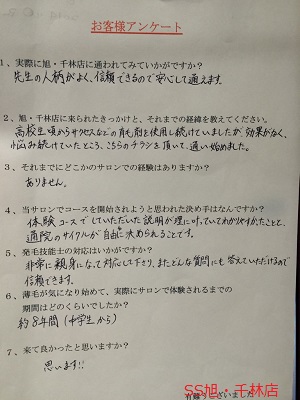 お客様アンケート
1、実際に旭・千林店に通われてみていかがですか?
先生の人柄がよく、信頼できるので安心して通えます。
2、旭・千林店に来られたきっかけと、それまでの経緯を教えてください。
高校生頃からサクセスなどの育毛剤を使用し続けていましたが効果がなく、
悩み続けていたところ、こちらのチラシを頂いて、通い始めました。
3、それまでにどこかのサロンでの経験はありますか?
ありません。
4、当サロンでコースを開始されようと思われた決め手はなんですか?
体験コースでしていただいた説明が理に叶っていてわかりやすかったことと、
通院のサイクルが自由に決められることです。
5、発毛技能士の対応はいかがですか?
非常に親身になって対応して下さり、またどんな質問にも答えていただけるので
信頼できます。
6、薄毛が気になり始めて、実際にサロンで体験されるまでの
期間はどのくらいでしたか?
約8年間(中学生から)
7、来て良かったと思いますか?
思います!!
ございました
SS旭・千林店